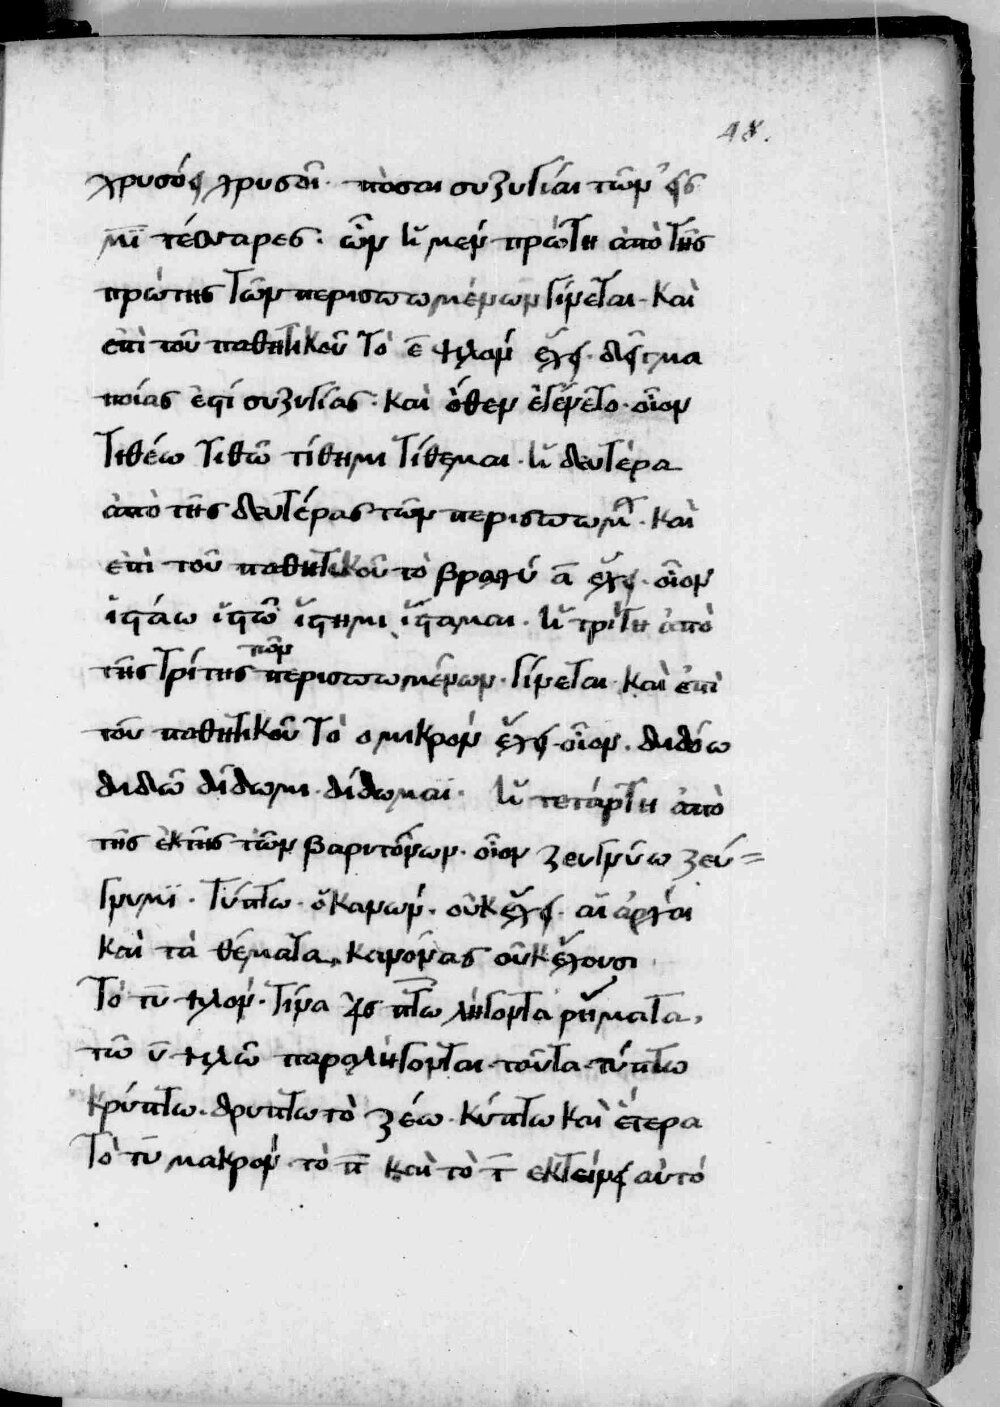 48.
χρυσόεις χρυσοῖ. πόσαι συζυγίαι τῶν εἰς
μῑ τέσσαρες. ὧν ἡ μὲν πρώτη ἀπὸ τῆς
πρώτης τῶν περισπωμένων γίνεται. καὶ
ἐπὶ τοῦ παθητικοῦ τὸ ε̄ ψιλὸν ἔχει. δεῖγμα
ποίας ἐστὶ συζυγίας. καὶ ὅθεν ἐγένετο. οἷον
τιθέω τιθῶ τίθημι τίθεμαι. ἡ δευτέρα
ἀπὸ τῆς δευτέρας τῶν περισπωμ. καὶ
ἐπὶ τοῦ παθητικοῦ τὸ βραχὺ ᾱ ἔχει. οἷον
ἱστάω ἱστῶ ἵστημι ἵσταμαι. ἡ τρίτη ἀπὸ
τῆς τρίτης τῶν περισπωμένων. γίνεται. καὶ ἐπὶ
τοῦ παθητικοῦ τὸ ο μικρὸν ἔχει. οἷον. διδόω
διδῶ δίδωμι. δίδωμαι. ἡ τετάρτη ἀπὸ
τῆς ἕκτης τῶν βαρυτόνων. οἷον ζευγνύω ζεύ=
γνυμι. τύπτω. ὁ κανών. οὐκ ἔχει. αἱ ἀρχαὶ
καὶ τὰ θέματα, κανόνας οὐκ ἔχουσι.
Τὸ τῡ ψιλόν. τίνα εἰς πτω λήγοντα ῥήματα,
τῶ ῡ ψιλῶ παραλήγονται. τοῦτα. τύπτω
κρύπτω. δρυπτω τὸ ζέω. κύπτω καὶ ἕτερα
Τὸ τῡ μακρόν. τὸ π̄ καὶ τὸ τ̄ ἐκτείνει αὐτό